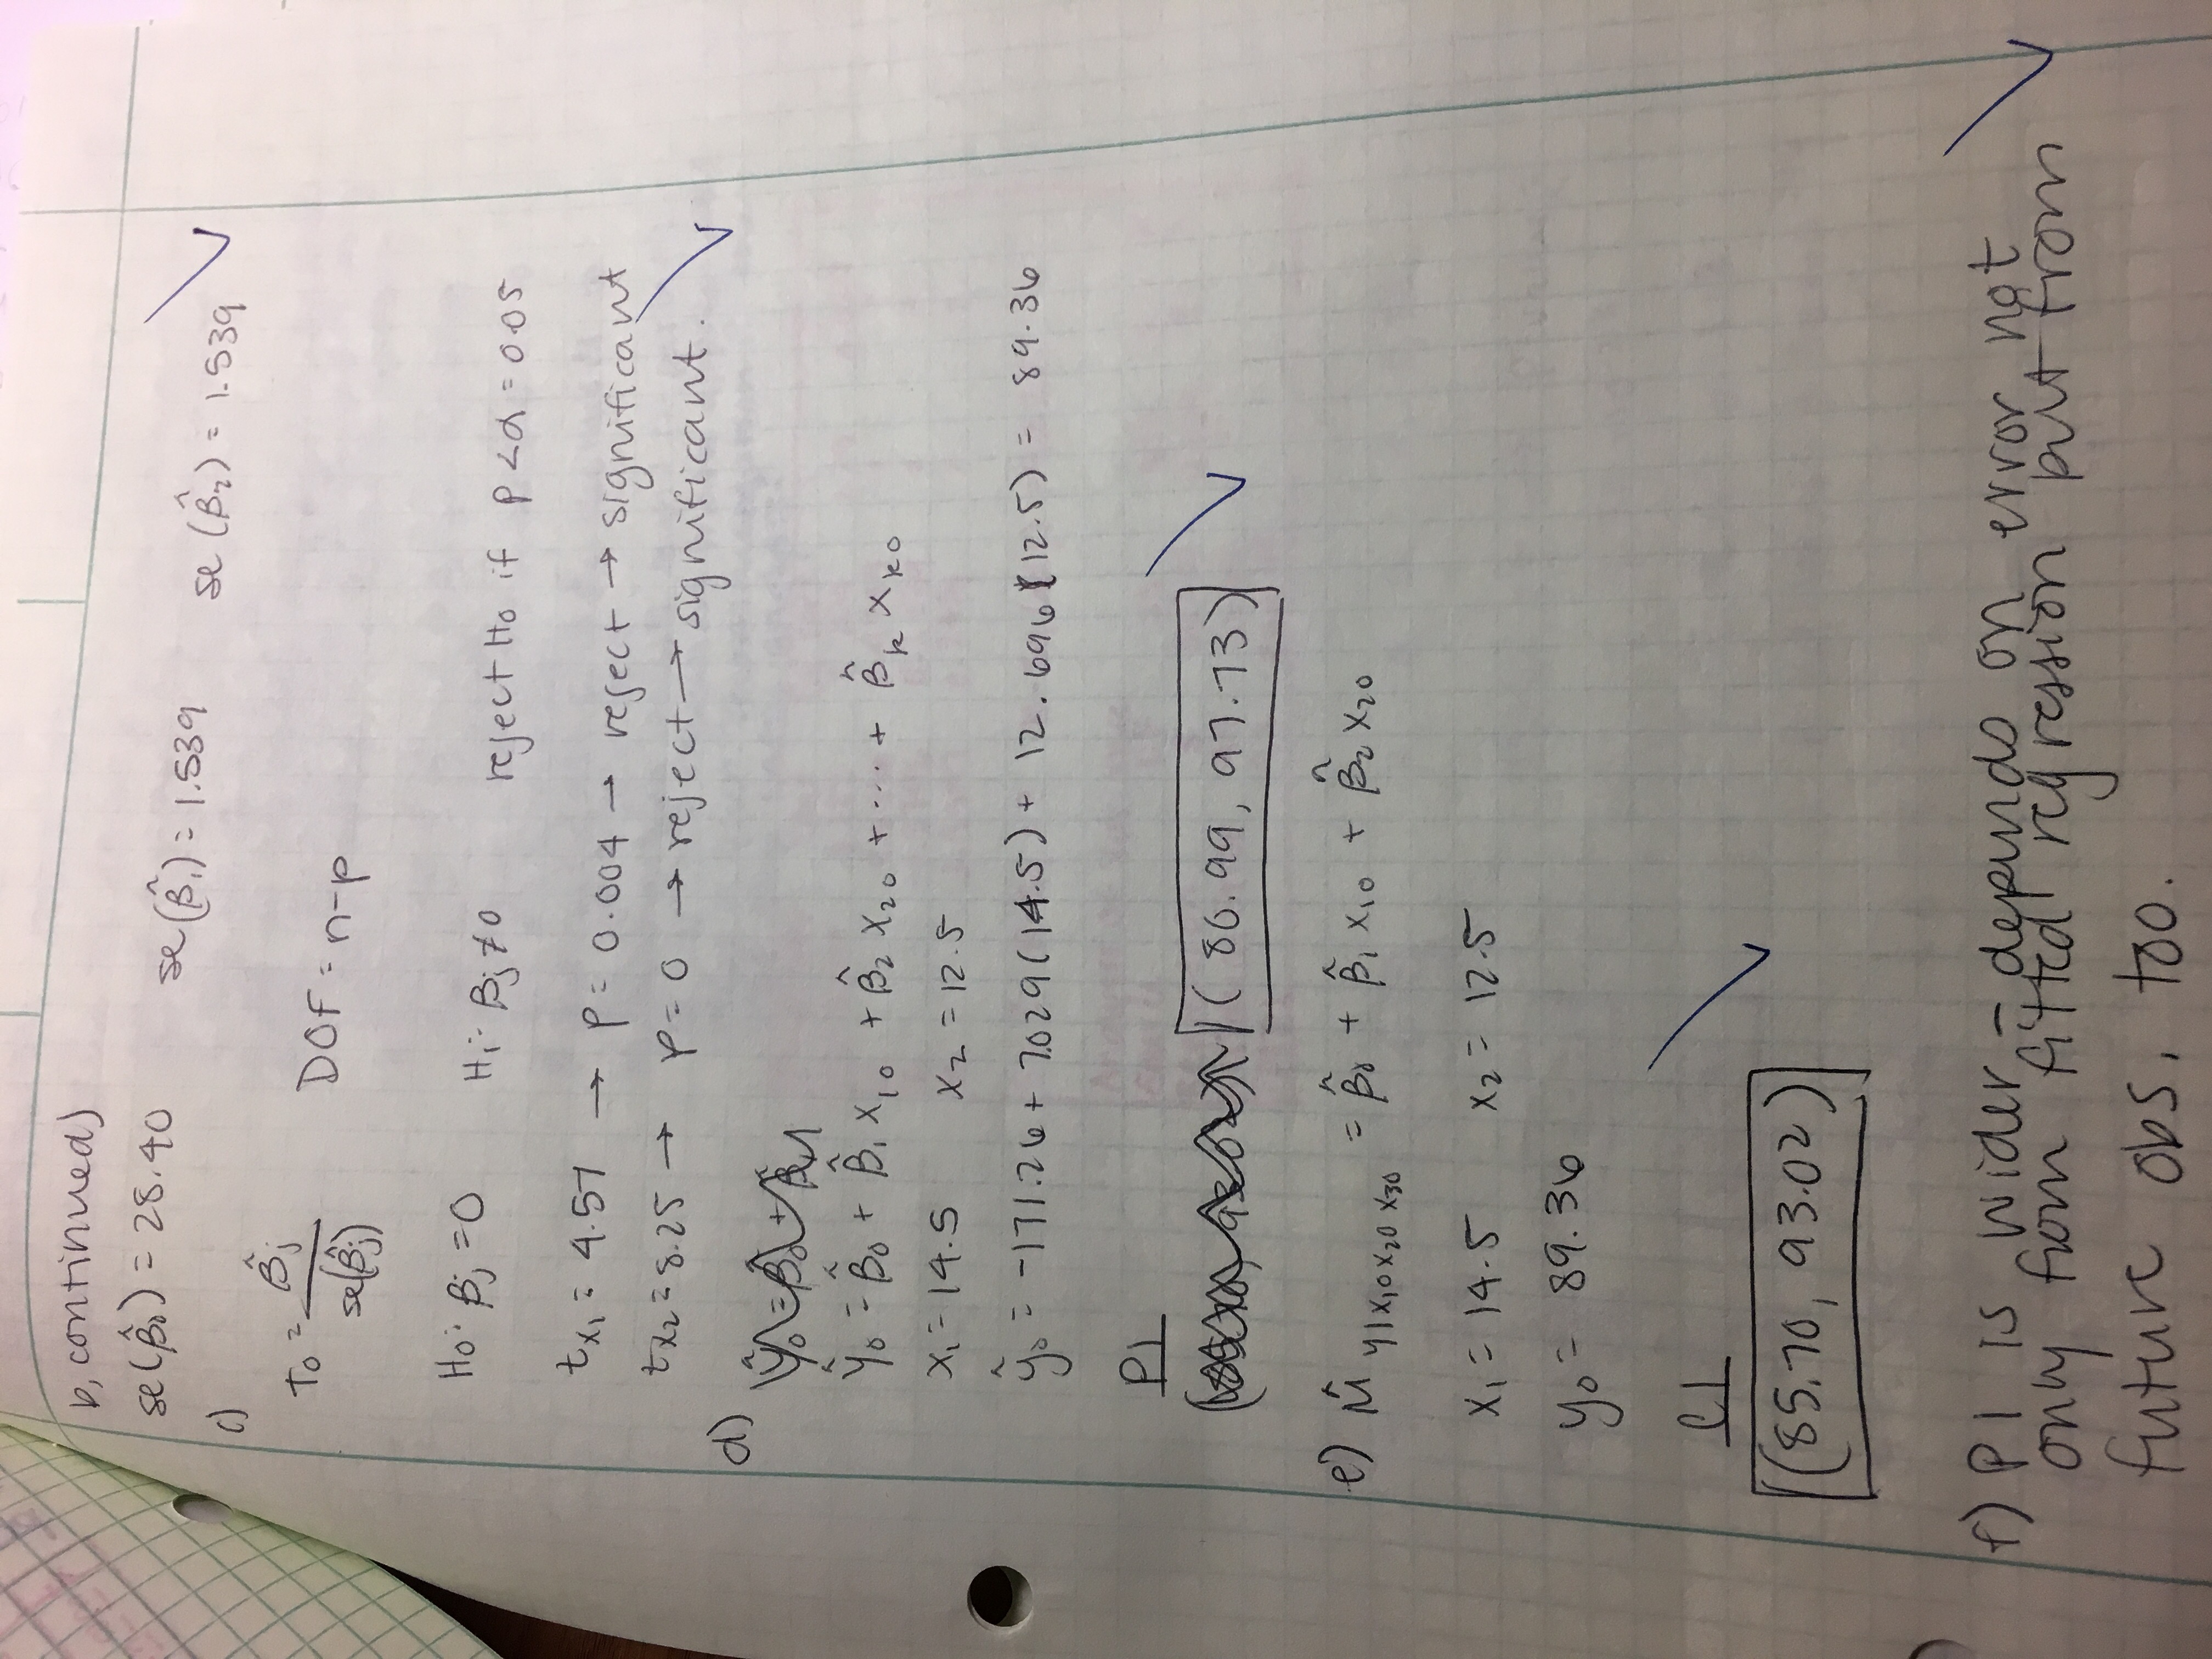 b, continued)
se(β̂₀) = 28.40 se(β̂₁) = 1.539 se(β̂₂) = 1.539
c)
T₀ = β̂j / se(β̂j) DOF = n-p
H₀: βj = 0 H₁: βj ≠ 0 reject H₀ if p < α = 0.05
tx₁ = 4.57 → p = 0.004 → reject → significant
tx₂ = 8.25 → p = 0 → reject → significant.
d)
ŷ₀ = β̂₀ + β̂₁ x₁₀ + β̂₂ x₂₀ + ... + β̂k xk₀
x₁ = 14.5 x₂ = 12.5
ŷ₀ = -171.26 + 7.029(14.5) + 12.696(12.5) = 89.36
PI
(80.99, 97.73)
e) μ̂ y|x₁₀ x₂₀ x₃₀ = β̂₀ + β̂₁ x₁₀ + β̂₂ x₂₀
x₁ = 14.5 x₂ = 12.5
y₀ = 89.36
CI
(85.70, 93.02)
f) PI is wider - depends on error not
only from fitted regression but from
future obs, too.